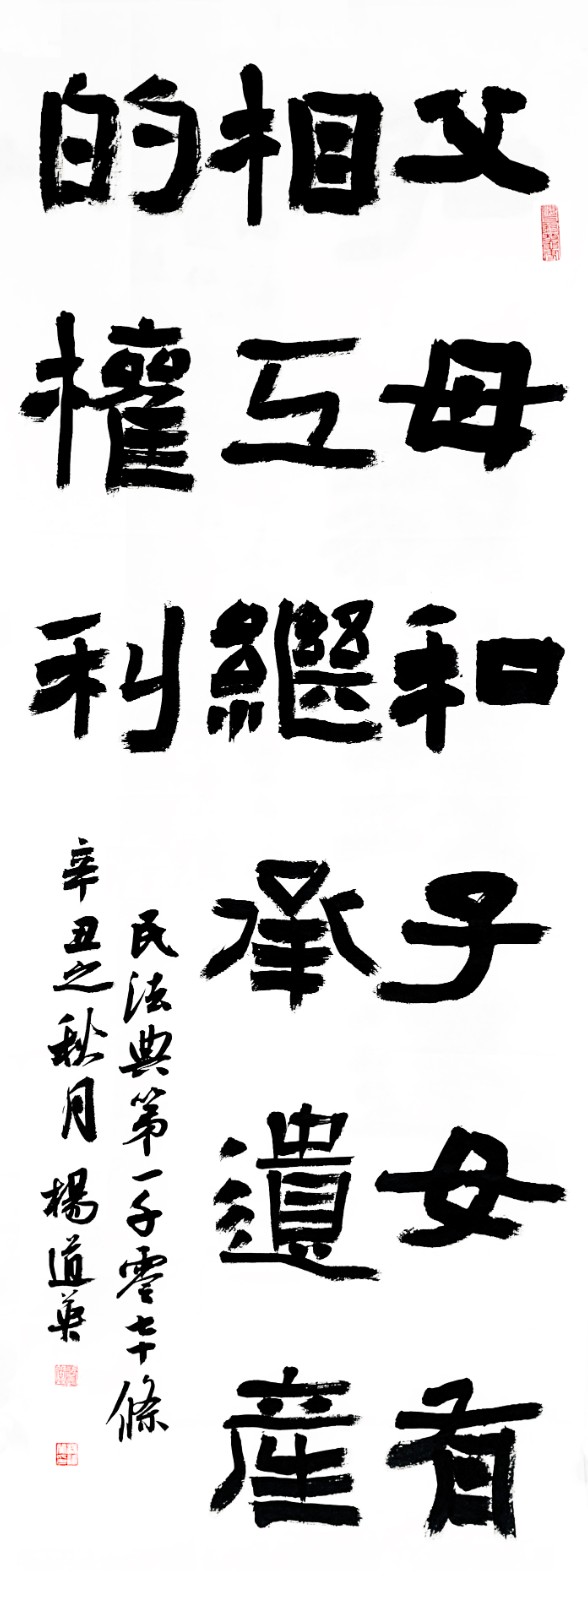 父母和子女有
相互繼承遺産
的權利
民法典第一千零七十條
辛丑之秋月 楊道英